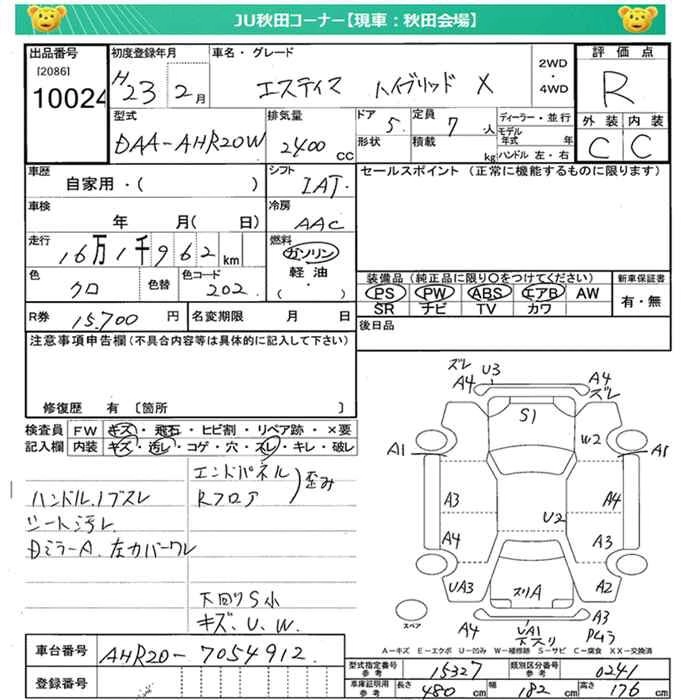 JU秋田コーナー【現車：秋田会場】
出品番号
[2086]
10024
初度登録年月
H23 2月
車名・グレード
エスティマ ハイブリッド X
2WD
・
4WD
評価点
R
外装 内装
C C
型式
DAA-AHR20W
排気量
2400 CC
ドア 5
定員 7 人
形状
積載 kg
ディーラー・並行
モデル年式 年
ハンドル 左・右
車歴
自家用・( )
シフト
IAT
セールスポイント（正常に機能するものに限ります）
車検
年 月( 日)
冷房
AAC
走行
16万1千962km
燃料
ガソリン
軽油
( ・ )
色
クロ
色替
色コード
202
装備品（純正品に限り○をつけてください）
PS PW ABS エアB AW
SR ナビ TV カワ
新車保証書
有・無
R券 15.700 円
名変期限 月 日
後日品
注意事項申告欄(不具合内容等は具体的に記入して下さい)
修復歴 有〔箇所 〕
検査員 FW キズ・飛石・ヒビ割・リペア跡・×要
記入欄 内装 キズ・汚レ・コゲ・穴・スレ・キレ・破レ
ハンドル、ノブスレ
シート汚レ
DミラーA、左カバーワレ
エンドパネル
Rフロア
歪み
下回りS小
キズ、U、W、
ズレ
A4
U3
A4
ズレ
S1
W2
A1
A1
A3
A4
U2
A4
A3
UA3
スリA
A2
スペア
A4
UA1
下スリ
A3
A-キズ E-エクボ U-凹み W-補修跡 S-サビ C-腐食 XX-交換済
車台番号
AHR20-7054912
登録番号
型式指定番号
参考
15327
類別区分番号
参考
0241
車庫証明用
参考
長さ 480 cm
幅 182 cm
高さ 176 cm